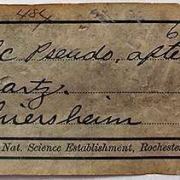 484 6
lc Pseudo. afte
artz.
iersheim
Nat. Science Establishment, Rochester